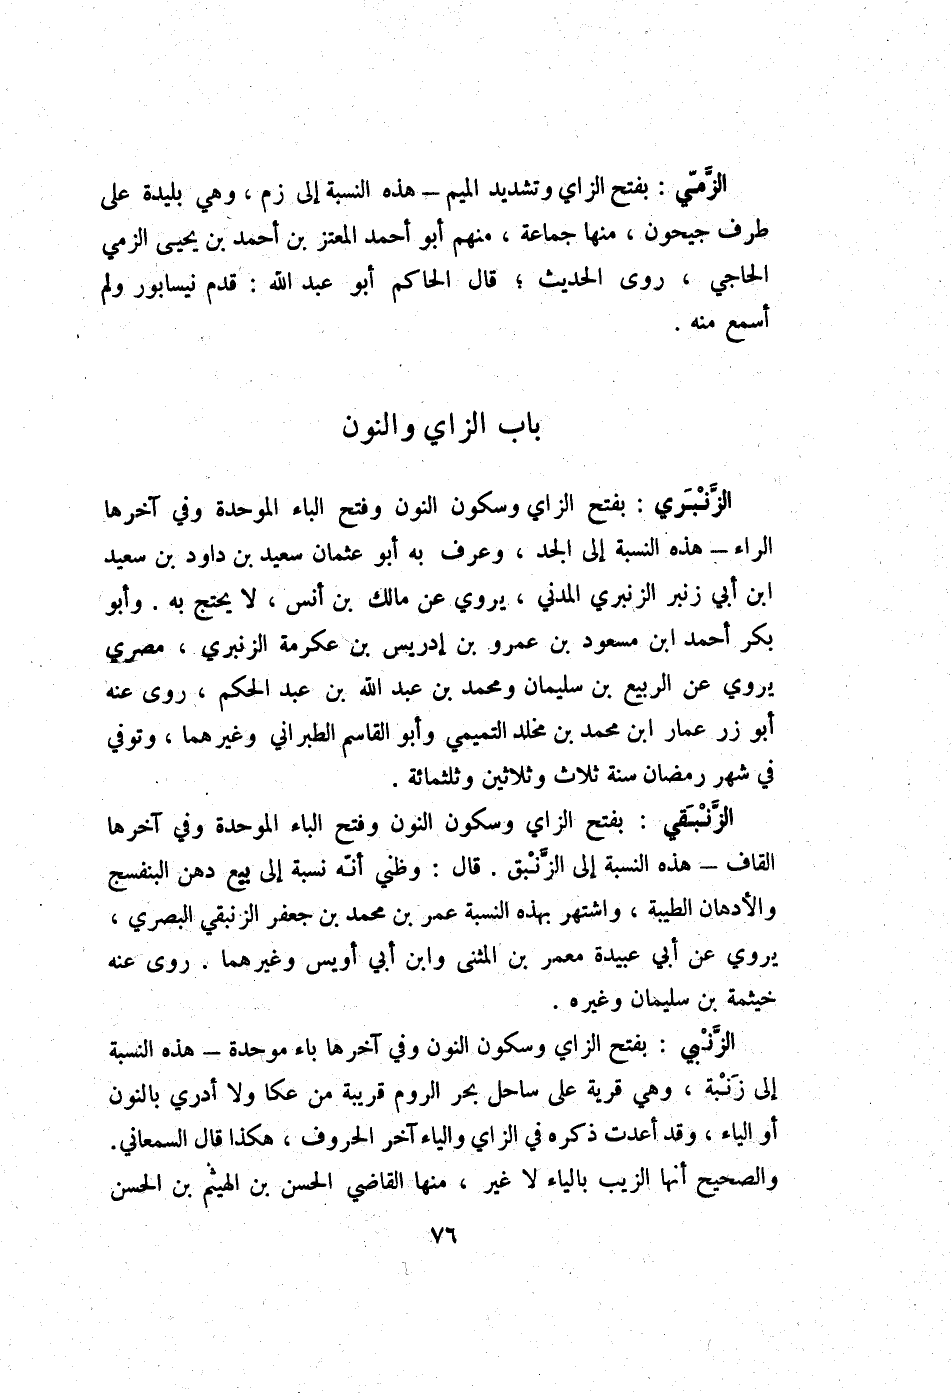 الزَّمّي : بفتح الزاي وتشديد الميم – هذه النسبة إلى زم ، وهي بليدة على
طرف جيحون ، منها جماعة ، منهم أبو أحمد المعتز بن أحمد بن يحيى الزمي
الحاجي ، روى الحديث ؛ قال الحاكم أبو عبد الله : قدم نيسابور ولم
أسمع منه .
باب الزاي والنون
الزَّنْبَري : بفتح الزاي وسكون النون وفتح الباء الموحدة وفي آخرها
الراء – هذه النسبة إلى الجد ، وعرف به أبو عثمان سعيد بن داود بن سعيد
ابن أبي زنبر الزنبري المدني ، يروي عن مالك بن أنس ، لا يحتج به . وأبو
بكر أحمد ابن مسعود بن عمرو بن إدريس بن عكرمة الزنبري ، مصري
يروي عن الربيع بن سليمان ومحمد بن عبد الله بن عبد الحكم ، روى عنه
أبو زر عمار ابن محمد بن مخلد التميمي وأبو القاسم الطبراني وغيرهما ، وتوفي
في شهر رمضان سنة ثلاث وثلاثين وثلثمائة .
الزَّنْبَقي : بفتح الزاي وسكون النون وفتح الباء الموحدة وفي آخرها
القاف – هذه النسبة إلى الزَّنْبق . قال : وظني أنّه نسبة إلى بيع دهن البنفسج
والأدهان الطيبة ، واشتهر بهذه النسبة عمر بن محمد بن جعفر الزنبقي البصري ،
يروي عن أبي عبيدة معمر بن المثنى وابن أبي أويس وغيرهما . روى عنه
خيثمة بن سليمان وغيره .
الزَّنْبي : بفتح الزاي وسكون النون وفي آخرها باء موحدة – هذه النسبة
إلى زَنْبة ، وهي قرية على ساحل بحر الروم قريبة من عكا ولا أدري بالنون
أو الياء ، وقد أعدت ذكره في الزاي والياء آخر الحروف ، هكذا قال السمعاني .
والصحيح أنها الزيب بالياء لا غير ، منها القاضي الحسن بن الهيثم بن الحسن
٧٦